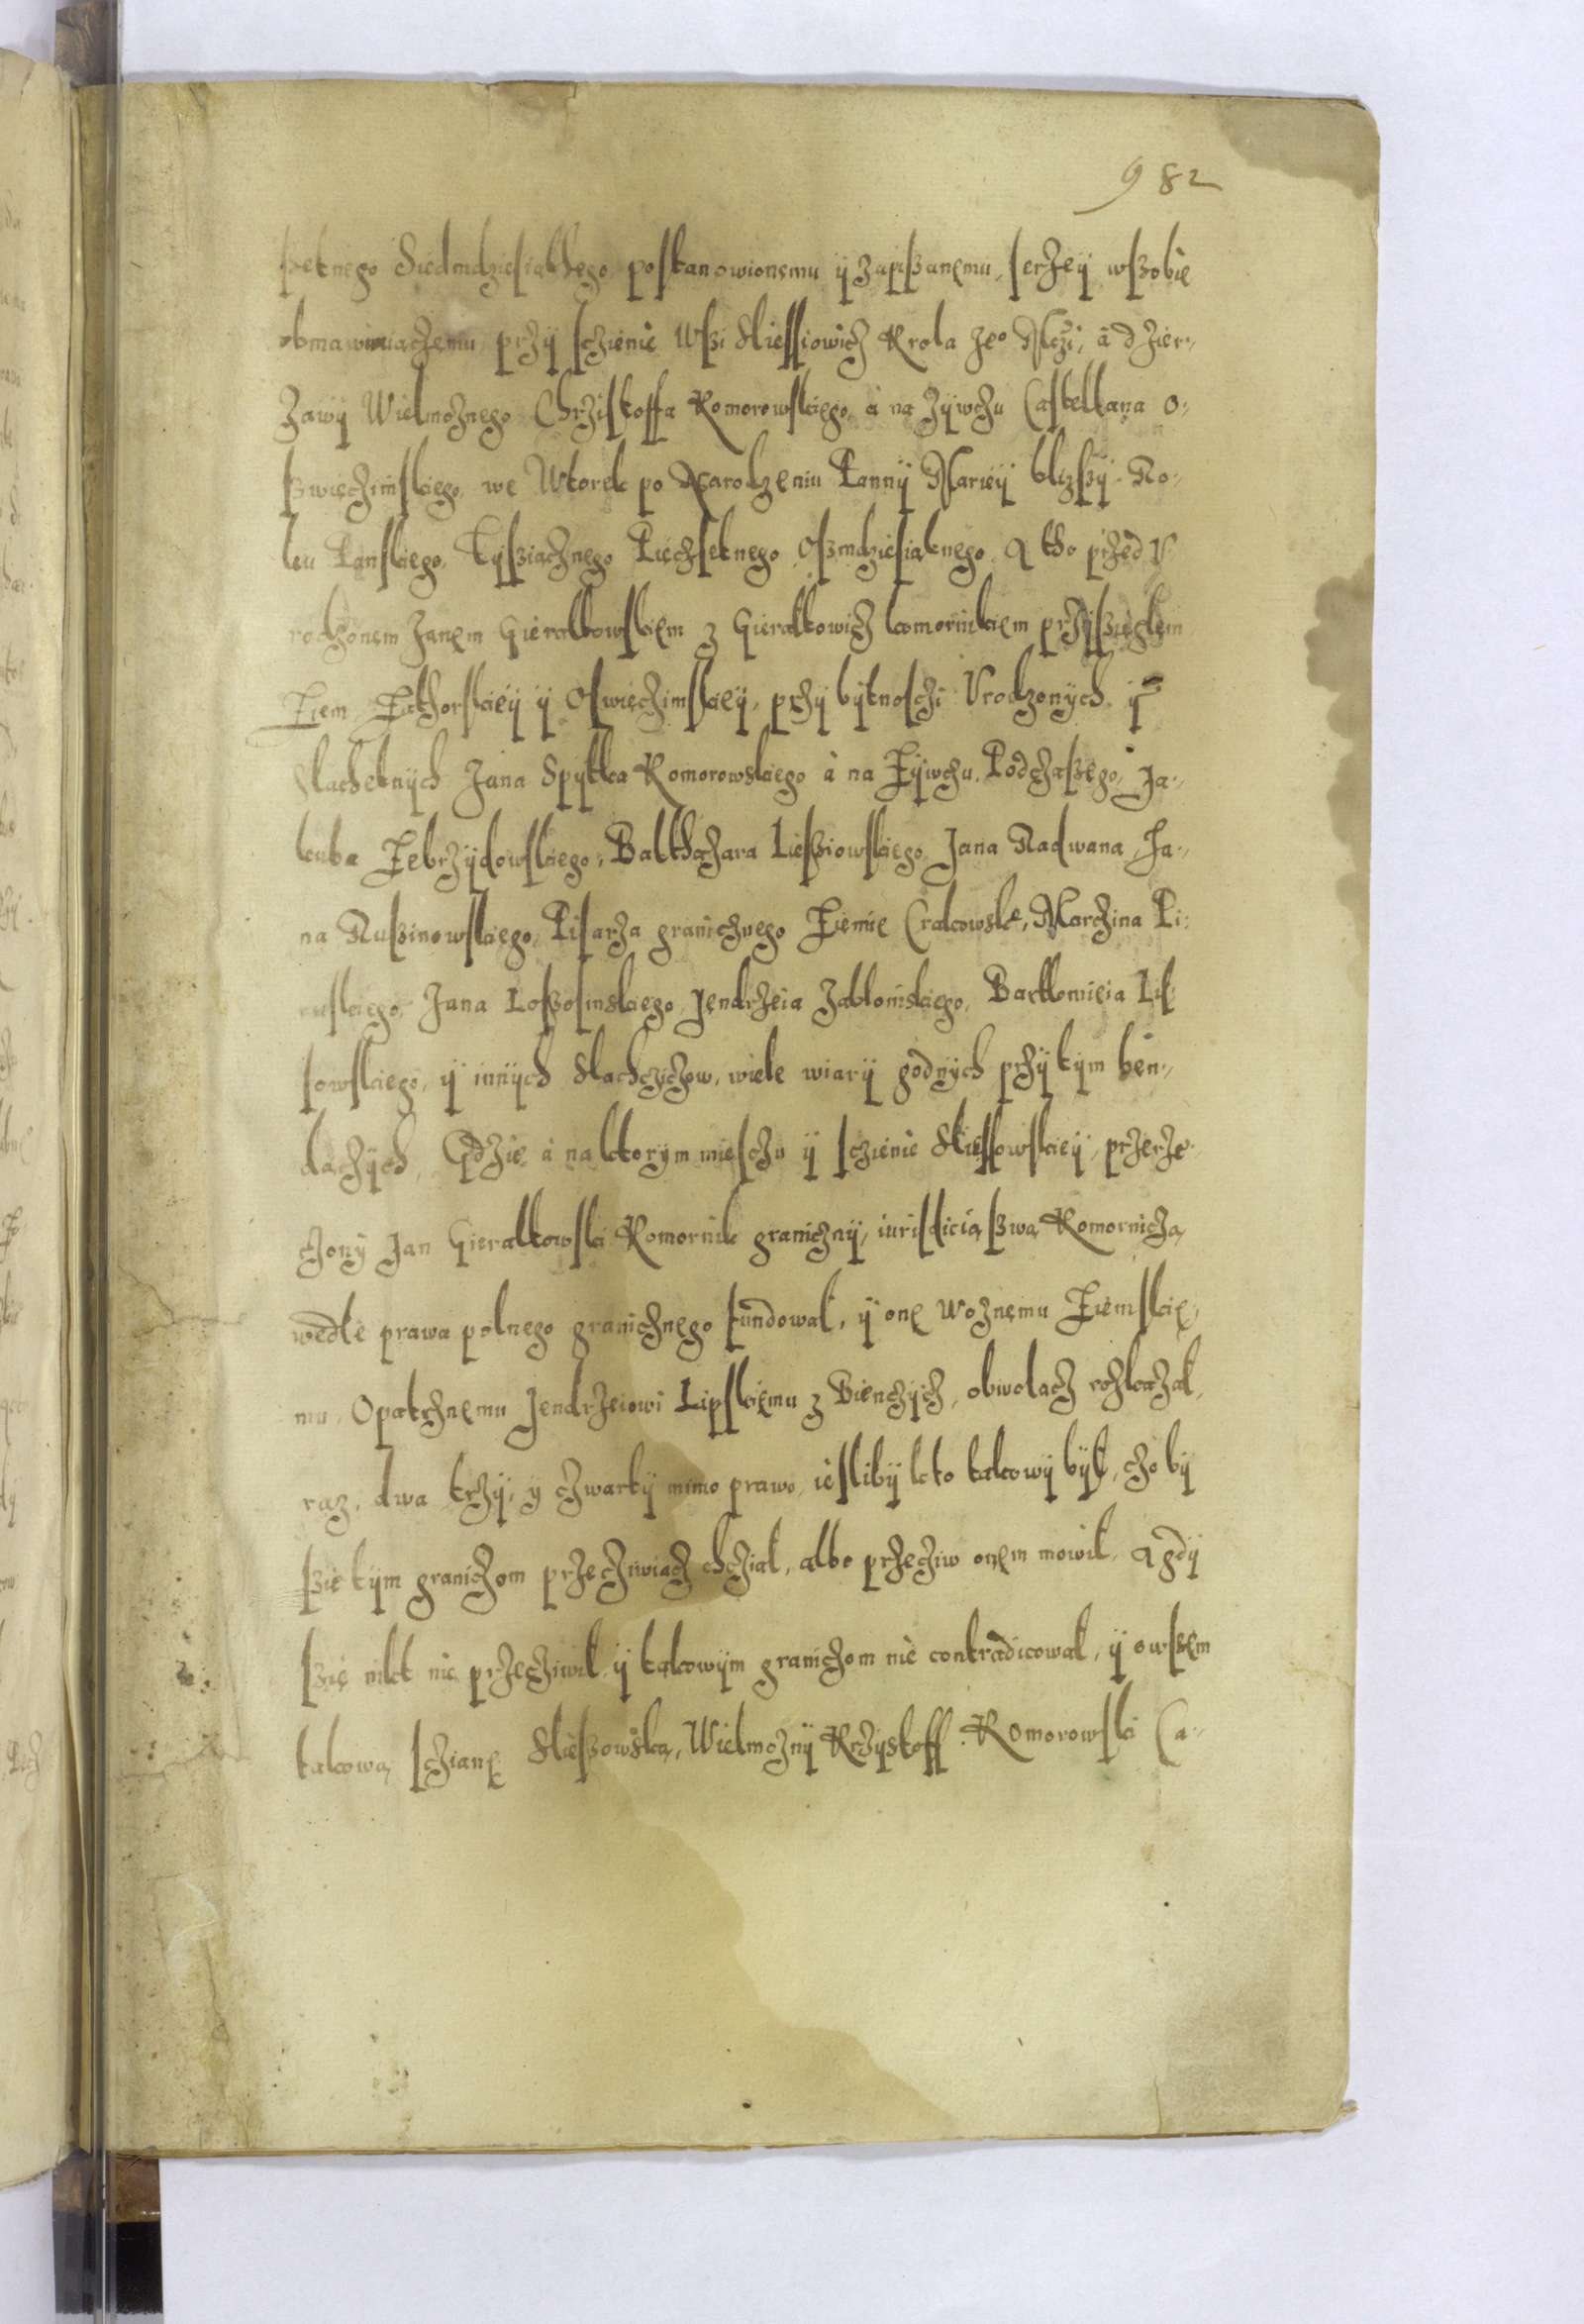 982
ſzetnego Siedmdzieſiąthego, poſtanowionemu ÿ zapiſzanemu, ſerzeÿ wſzobie
obmawiaiączemu, przÿ ſczienie Wſzi Slieſſiowicz Krola Jeo Mczi, à dzier„
zawÿ Wielmoznego Chrziſtoffa Komorowſkiego, à na Zÿwczu Caſtellana O„
ſzwięczimſkiego, we Wtorek po Narodzeniu Pannÿ Mariÿ blizſzÿ. Ro„
ku Panſkiego, Tÿſziącznego Pięczſetnego Oſzmdzieſiątnego. A tho przed V„
rodzonem Janem Gieraltowſkiem z Gieraltowicz komornikiem przÿſzięglem
Ziem Zathorſkieÿ ÿ Oſwięczimſkieÿ, przÿ bÿtnoſczi Vrodzonÿch ÿ
Slachetnÿch Jana Spÿtka Komorowskiego à na Zÿwczu, Podczaſzego, Ja„
kuba Zebrzÿdowſkiego, Balthazara Lieſziowſkiego, Jana Radwana, Ja„
na Ruſzinowſkiego, Piſarza granicznego Ziemie Crakowske, Marczina Pi„
Jana Loſzoſinskiego, Jendrzeia Jabloniskiego, Bartlomieia Liſ„
ſowſkiego, ÿ innÿch Slachczÿczow, wiele wiarÿ godnÿch przÿ tÿm ben„
dączÿch, Gdzie à na ktorÿm mieſczu ÿ ſczienie Slieſſowſkieÿ, przerze„
czonÿ Jan Gieraltowſki Komornik granicznÿ, iuriſdicią ſzwą Komorniczą,
wedle prawa polnego granicznego fundowal, ÿ onę Woznemu Ziemſkie„
mu, Opatrznemu Jendrzeiowi Lipſkiemu z Bienczÿcz, obwolacz rozkazal,
raz, dwa trzÿ, y czwartÿ mimo prawo, ieſlibÿ kto takowÿ bÿl, czo bÿ
ſzie tÿm graniczom przecziwiacz chczial, albo przecziw onem mowil. A gdÿ
ſzię nikt nie przecziwil, ÿ takowÿm graniczom nie contradicowal, ÿ owſzem
takową ſczianę Slieſzowſką, Wielmoznÿ Krzÿstoff Komorowſki Ca„